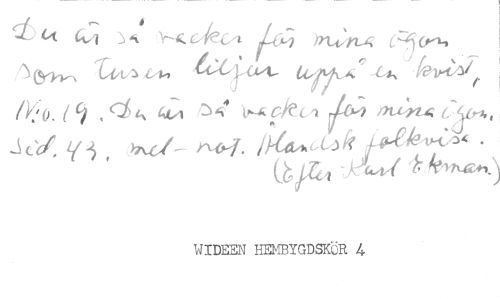 Du är så vacker för mina ögon
som tusen liljor uppå en kvist,
N:o. 19. Du är så vacker för mina ögon.
Sid. 43. mel-not. Åländsk folkvisa.
(Efter Karl Ekman.)
WIDEEN HEMBYGDSKÖR 4